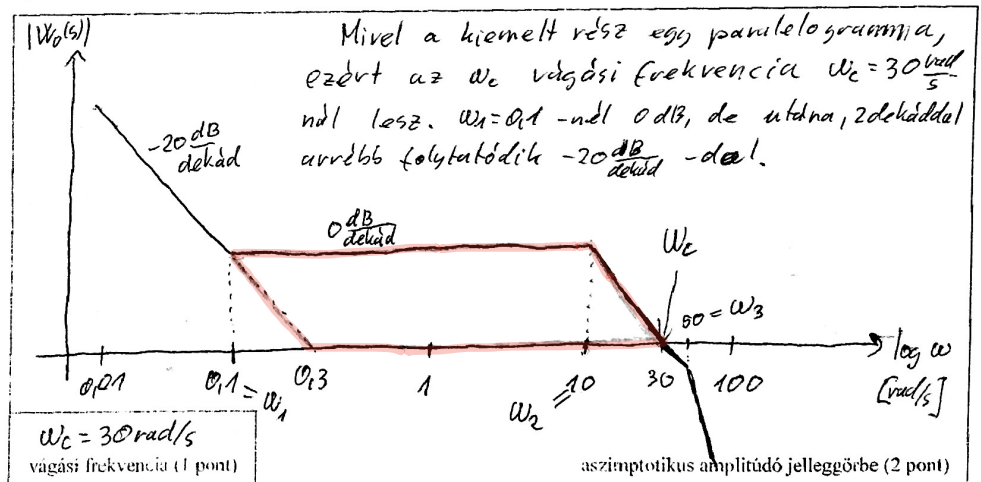 |W₀(s)|
Mivel a kiemelt rész egy paralelogramma,
ezért az ωc vágási frekvencia ωc = 30 rad/s
nál lesz. ω₁=0,1 -nél 0 dB, de utána, 2 dekáddal
arrébb folytatódik -20 dB/dekád -dal.
-20 dB/dekád
0 dB/dekád
ωc
50 = ω₃
log ω
[rad/s]
0,01
0,1 = ω₁
0,3
1
10
ω₂ =
30
100
ωc = 30 rad/s
vágási frekvencia (1 pont)
aszimptotikus amplitúdó jelleggörbe (2 pont)